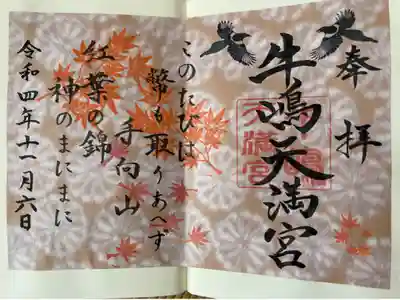 奉拝
牛鳴天満宮
天満宮
このたびは
幣も取りあへず
手向山
紅葉の錦
神のまにまに
令和四年十一月六日